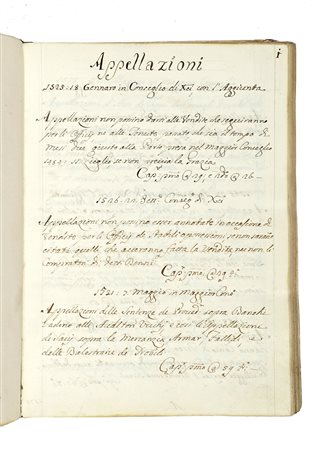 1
Appellazioni
1525. 18. Gennaro in Conseglio di Xci con l'Aggionta
Appellazioni non potino darsi alle Vendite che seguiranno
per li Officij se alle Venute passato che sia il tempo di
mesi due giusto alla Parte presa nel maggior Conseglio
1452. Luglio se non per via la grazia.
Cap. pmo @ 29 e nro @ 26.
1526. 22. Conseg. di Xci
Appellazioni non possino esser annotate in occasione di
Vendite per li Officij di Stabili
citati quelli che averanno fatta la Vendita ne non li
Compratori di detti Beni.
Cap. pmo @ 29
1521. 3. Maggio in Maggior Cons
Appellazioni delle Sentenze de Proved. sopra Banchi
vadino alli Auditori Vecchi e così l'Appellazione
di Savij sopra la Mercanzia Armar Falliti, e
delle Balestrarie de Nobili
Cap. pmo @ 89